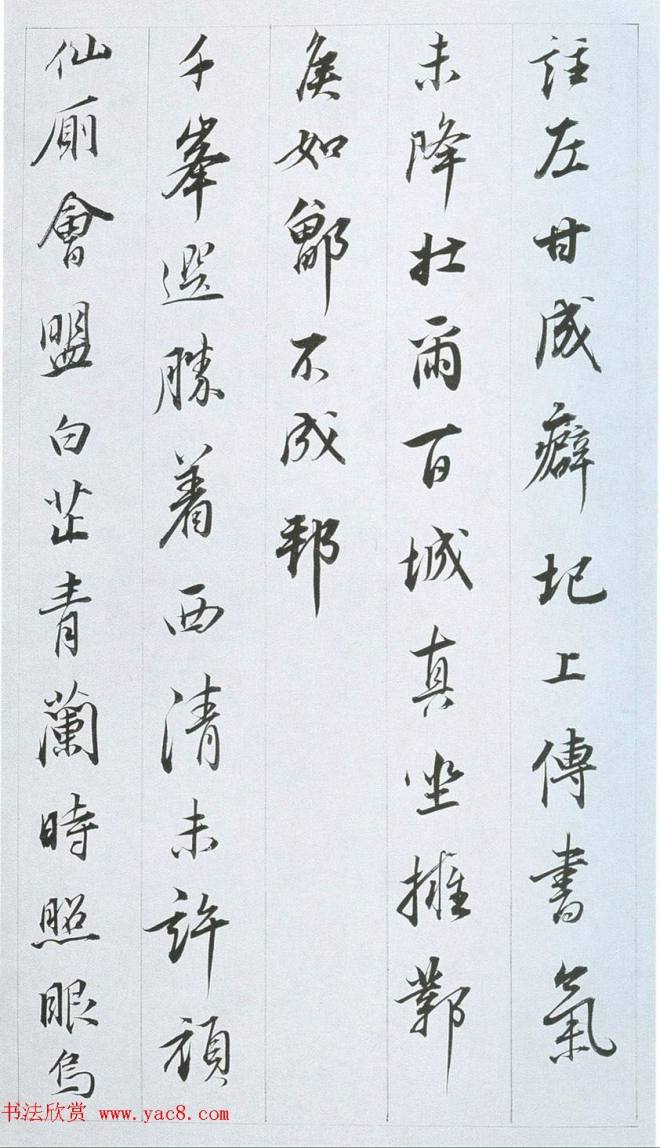 註左甘成癖圯上傳書氣
未降壯爾百城真坐擁鄴
矦如鄶不成邦
千峯選勝着西清未許頑
仙廁會盟白芷青蘭時照眼烏
书法欣赏 www.yac8.com